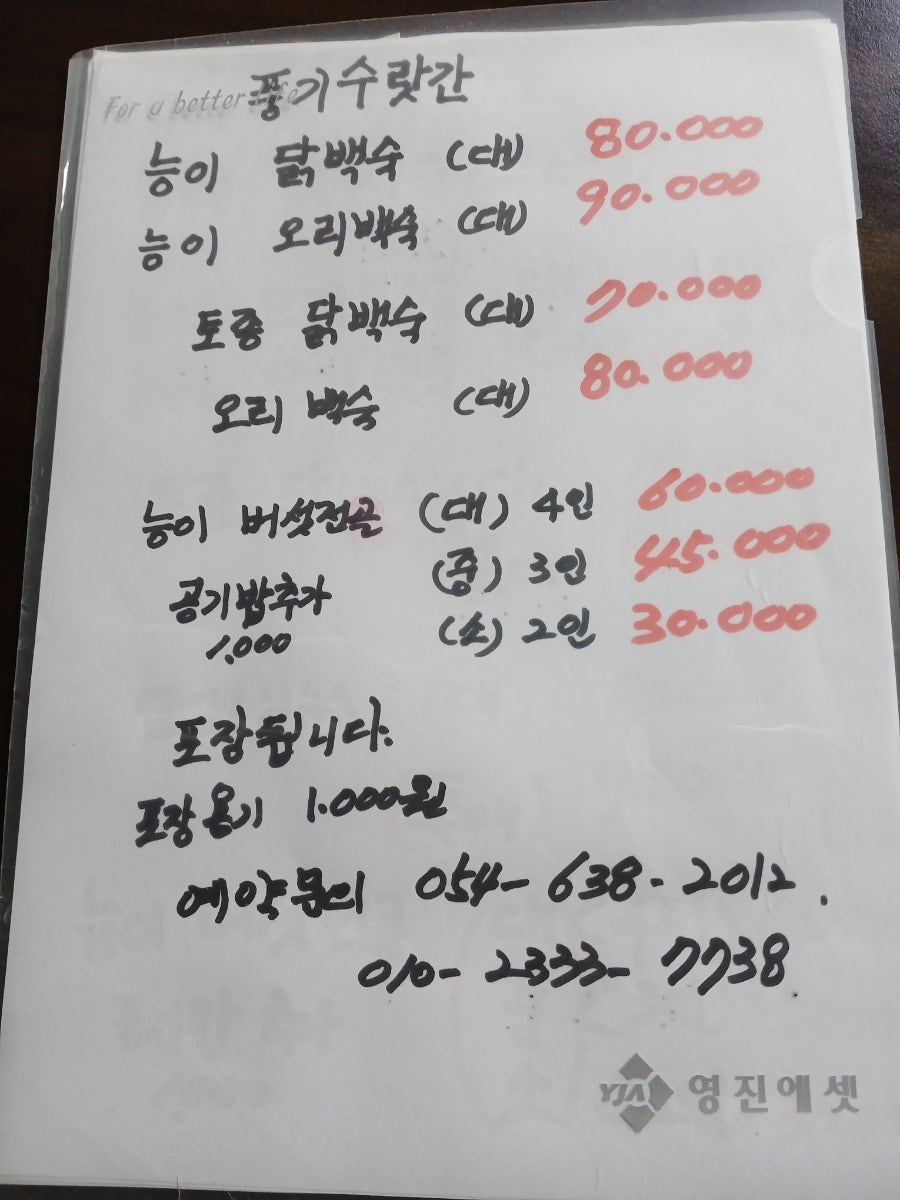 For a better life
풍기수랏간
능이 닭백숙 (대) 80.000
능이 오리백숙 (대) 90.000
토종 닭백숙 (대) 70.000
오리 백숙 (대) 80.000
능이 버섯전골 (대) 4인 60.000
(중) 3인 45.000
공기밥추가
(소) 2인 30.000
1,000
포장됩니다.
포장용기 1.000원
예약문의 054-638-2012.
010-2333-7738
YJA 영진에셋